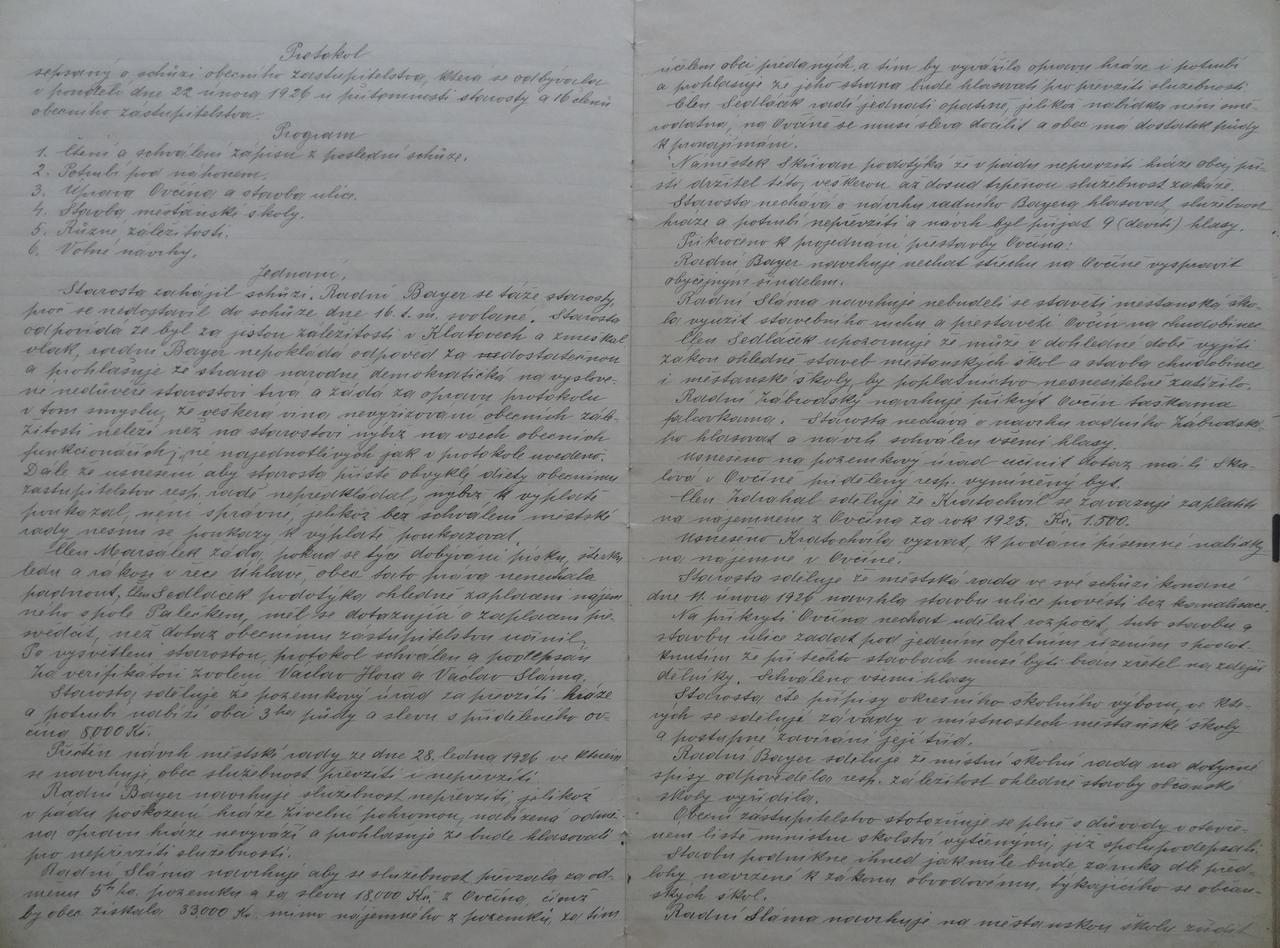 Protokol
sepsaný o schůzi obecního zastupitelstva, která se odbývala
v pondělí dne 22 února 1926 u přítomnosti starosty a 16 členů
obecního zástupitelstva.
Program
1. Čtení a schválení zápisu z poslední schůze.
2. Potrubí pod náhonem.
3. Úprava Ovčína a stavba ulice.
4. Stavba měšťanské školy.
5. Různé záležitosti.
6. Volné návrhy.
Jednání.
Starosta zahájil schůzi. Radní Bayer se táže starosty,
proč se nedostavil do schůze dne 16. t. m. svolané. Starosta
odpovídá že byl za jistou záležitostí v Klatovech a zmeškal
vlak, radní Bayer nepokládá odpověď za dostatečnou
a prohlašuje že strana národně demokratická na vyslove-
né nedůvěře starostovi trvá a žádá za opravu protokolu
v tom smyslu, že veškerá vina nevyřizování obecních zále-
žitostí neleží než na starostovi nýbrž na všech obecních
funkcionářích, ne na jednotlivých jak v protokole uvedeno.
Dále že usnesení aby starosta příště obvyklé diety obecnímu
zastupitelstvu resp. radě nepředkládal, nýbrž k výplatě
poukázal, není správné, jelikož bez schválení městské
rady nesmí se poukazy k výplatě poukazovat.
Člen Maršálek žádá, pokud se týče dobývání písku, štěrku
ledu a rákosu v řece Úhlavě, obec tato práva nenechala
padnout. Člen Sedláček podotýká ohledně zaplacení nájem
ného s pole Paleíkem, měl se dotazující o zaplacení pře-
svědčit, než dotaz obecnímu zástupitelstvu učinil.
Po vysvětlení starostou, protokol schválen a podepsán
Za verifikátory zvoleni Václav Hora a Václav Sláma.
Starosta sděluje že pozemkový úřad za převzetí hráze
a potrubí nabízí obci 3 ha půdy a slevu s přiděleného ov-
čína 8.000 Kč.
Přečten návrh městské rady ze dne 28. ledna 1926 ve kterém
se navrhuje, obec služebnost převzíti i nepřevzíti.
Radní Bayer navrhuje služebnost nepřevzíti, jelikož
v pádu poškození hráze živelní pohromou, nabízená odmě-
na opravu hráze nevyváží a prohlašuje že bude hlasovati
pro nepřevzetí služebnosti.
Radní Sláma navrhuje aby se služebnost převzala za od-
měnu 5 ha. pozemků a za slevu 18.000 Kč z Ovčína, čímž
by obec získala 33.000 Kč mimo nájemného z pozemků, za tím
účelem obci předaných, a tím by vyvážila opravu hráze i potrubí
a prohlašuje že jeho strana bude hlasovati pro převzetí služebnosti
Člen Sedláček radí jednati opatrně, jelikož nabídka není smě-
rodatná, na Ovčíně se musí sleva docílit a obec má dostatek půdy
k pronajímání.
Náměstek Skřivan podotýká že v pádu nepřevzetí hráze obcí, pří-
ští držitel této, veškerou až dosud trpěnou služebnost zakáže.
Starosta nechává o návrhu radního Bayera hlasovat, služebnost
hráze a potrubí nepřevzíti a návrh byl přijat 9 (devíti) hlasy.
Přikročeno k projednání přestavby Ovčína:
Radní Bayer navrhuje nechat střechu na Ovčíně vyspravit
obyčejným šindelem.
Radní Sláma navrhuje nebude-li se stavěti měšťanská ško-
la využít stavebního ruchu a přestavěti Ovčín na chudobinec
Člen Sedláček upozorňuje že může v dohledné době vyjíti
zákon ohledně staveb měšťanských škol a stavba chudobince
i měšťanské školy, by poplatnictvo nesnesitelně zatížilo.
Radní Zábrodský navrhuje přikrýt Ovčín taškama
falcovkama. Starosta nechává o návrhu radního Zábrodské-
ho hlasovat a návrh schválen všemi hlasy.
Usneseno na pozemkový úřad učinit dotaz má-li Ska-
lová v Ovčíně přidělený resp. výměnný byt.
Člen Zdráhal sděluje že Kratochvíl se zavazuje zaplatiti
na nájemném z Ovčína za rok 1925. Kč. 1.500.
Usneseno Kratochvíla vyzvat, k podání písemné nabídky
na nájemné v Ovčíně.
Starosta sděluje že městská rada ve své schůzi konané
dne 11. února 1926 navrhla stavbu ulice provésti bez kanalisace.
Na přikrytí Ovčína nechat udělat rozpočet, tuto stavbu a
stavbu ulice zadat pod jedním ofertním řízením s podot-
knutím že při těchto stavbách musí býti brán zřetel na zdejší
dělníky. Schváleno všemi hlasy
Starosta čte přípisy okresního školního výboru, ve kte-
rých se sdělují závady v místnostech měšťanské školy
a postupné zavírání její tříd.
Radní Bayer sděluje že místní školní rada na dotyčné
spisy odpověděla resp. záležitost ohledně stavby občanské
školy vyřídila.
Obecní zástupitelstvo stotožňuje se plně s důvody v otevře-
ném listě ministru školství vytčenými, již spolupodepsali.
Stavbu podnikne ihned jakmile bude záruka dle před-
lohy navržené k zákonu obvodovému, týkajícího se občan-
ských škol.
Radní Sláma navrhuje na měšťanskou školu zřídit